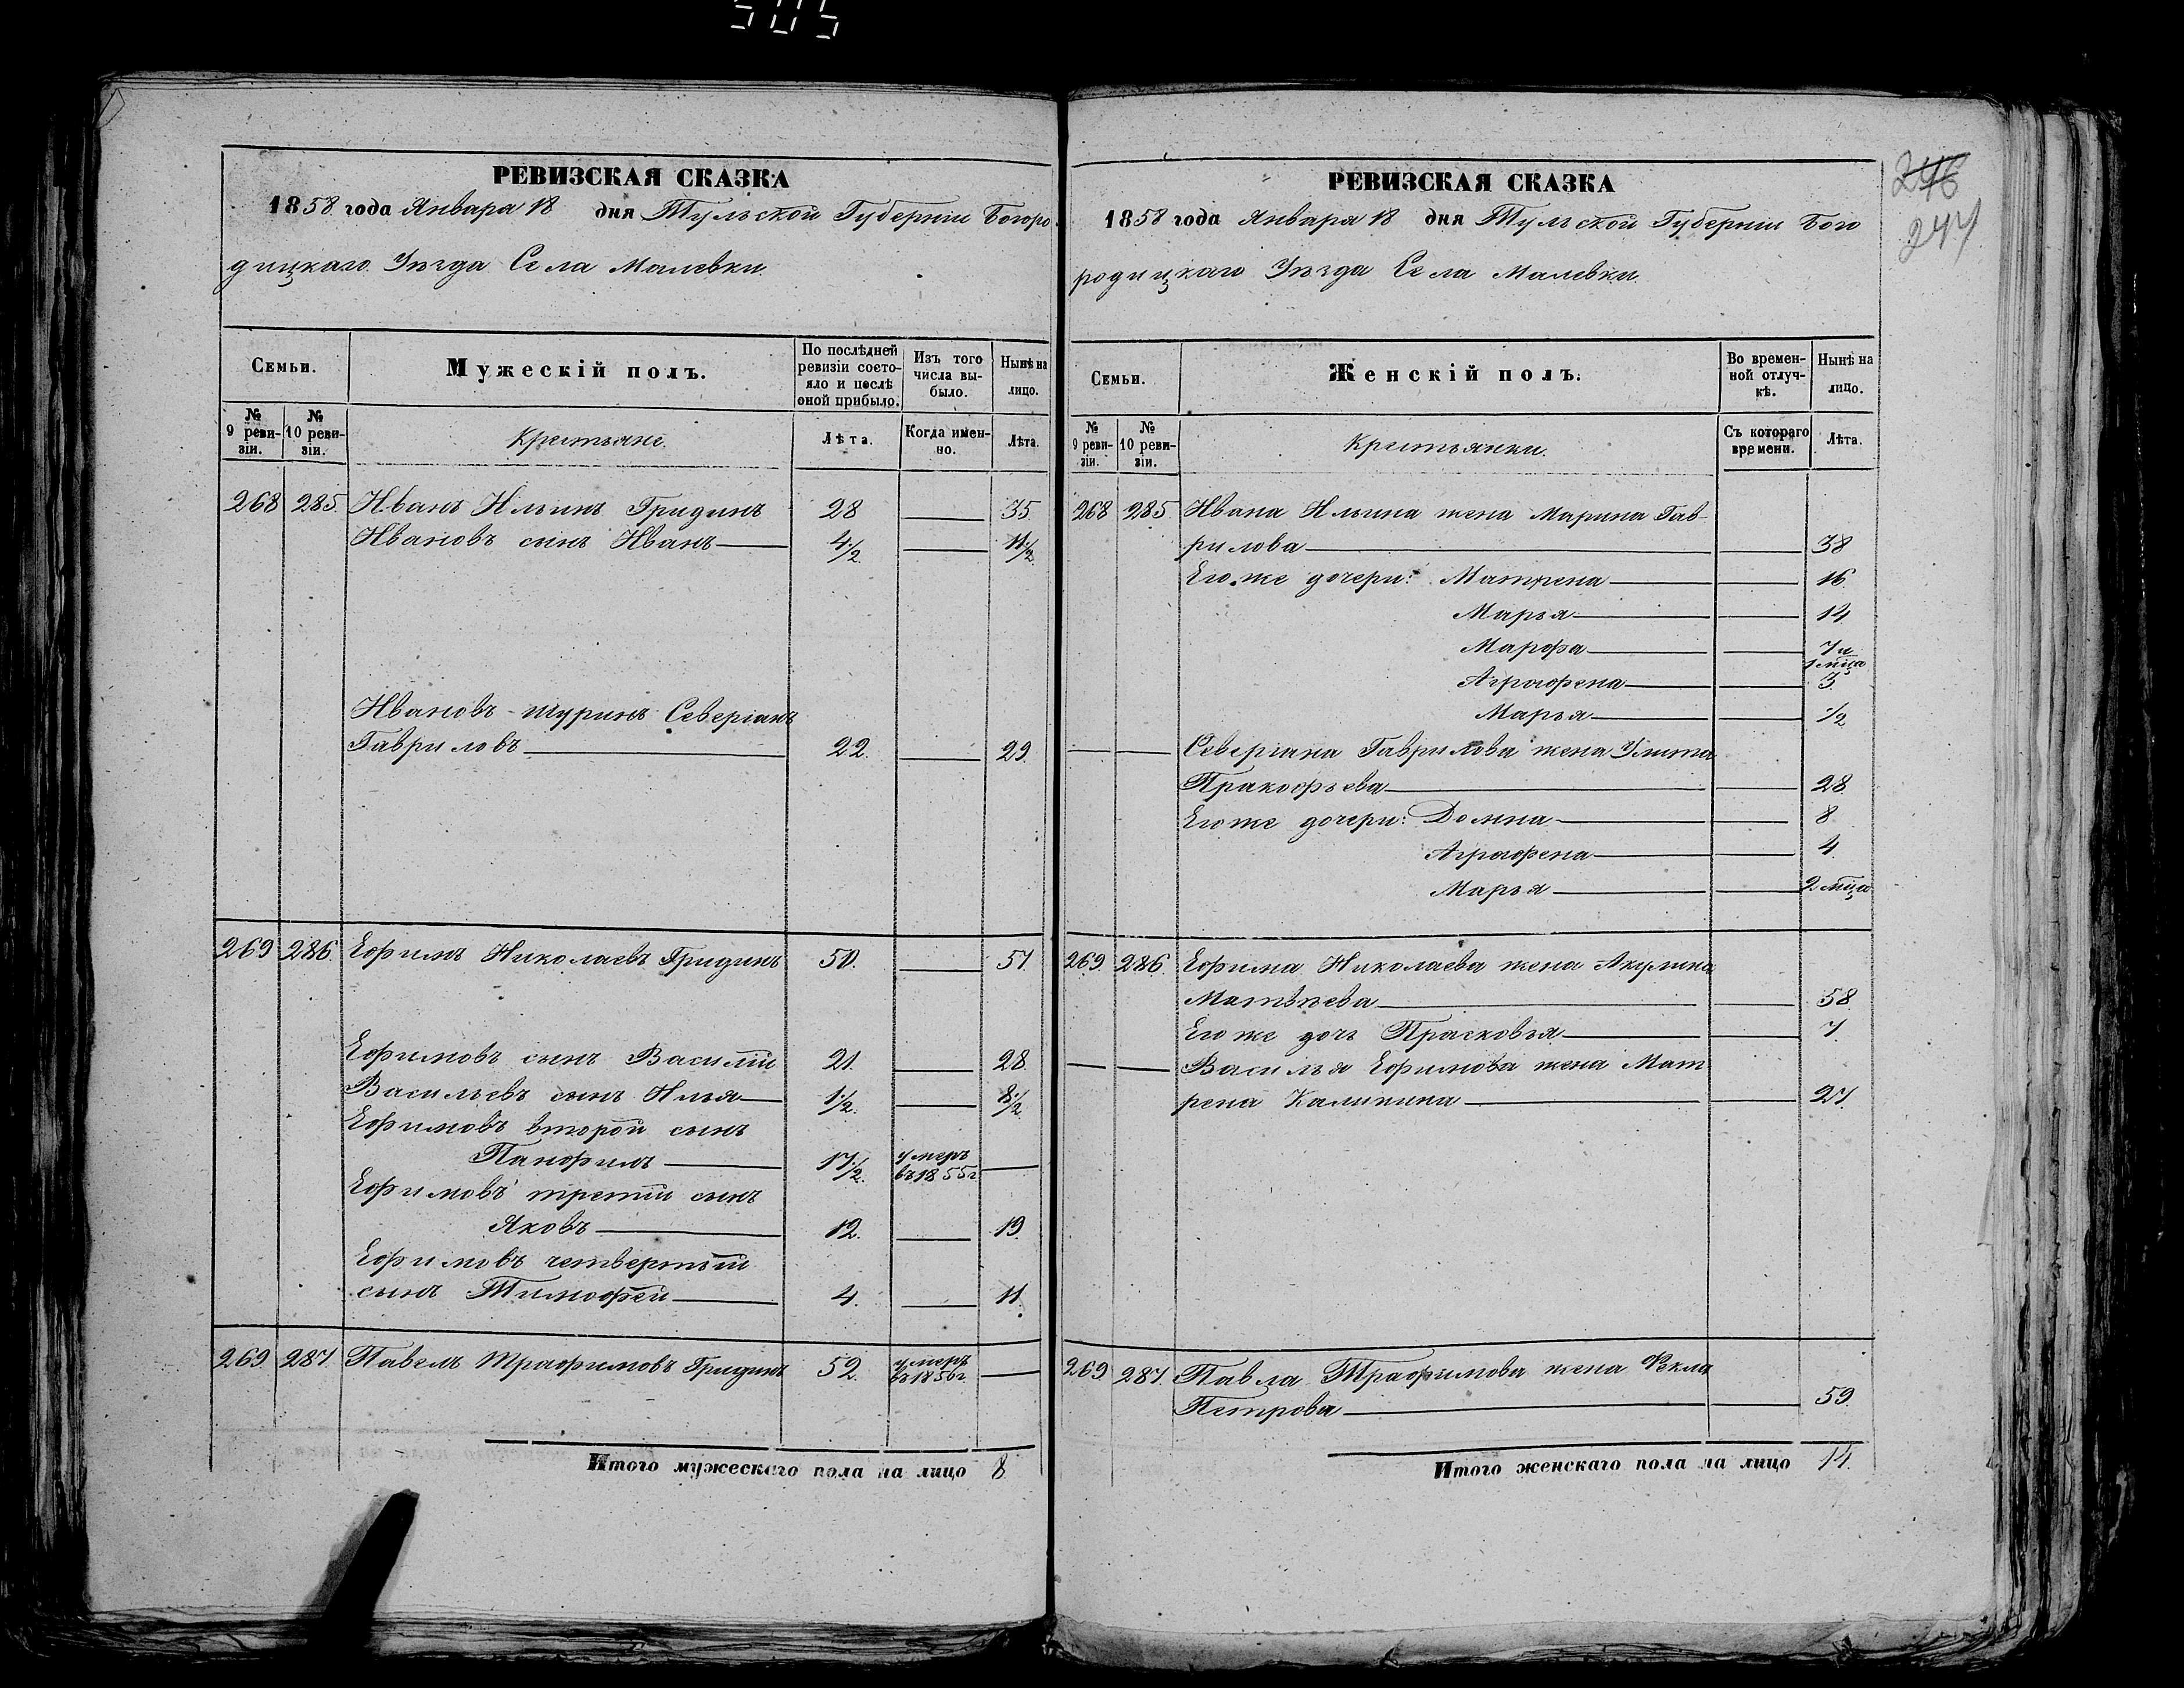 505
РЕВИЗСКАЯ СКАЗКА
1858 года Января 18 дня Тульской Губерніи Богоро-
дицкаго Уѣзда Села Малевки.
Семьи.
Мужескій полъ.
По послѣдней ревизіи состо-яло и послѣ оной прибыло.
Изъ того числа вы-было.
Нынѣ на лицо.
№ 9 реви-зіи.
№ 10 реви-зіи.
Крестьяне.
Лѣта.
Когда имен-но.
Лѣта.
268 285. Иванъ Ильинъ Гридинъ 28 — 35.
Ивановъ сынъ Иванъ — 4½ — 11½
Ивановъ шуринъ Северіанъ
Гавриловъ — 22. — 29.
269 286. Ефимъ Николаевъ Гридинъ 50. — 57.
Ефимовъ сынъ Василій 21. — 28.
Васильевъ сынъ Илья — 1½ — 8½
Ефимовъ второй сынъ
Панфилъ — 17½. умеръ въ 1855 г —
Ефимовъ третій сынъ
Яковъ — 12. — 19.
Ефимовъ четвертый
сынъ Тимофей — 4. — 11.
269. 287. Павелъ Трафимовъ Гридинъ 52. умеръ въ 1856 г. —
Итого мужескаго пола на лицо 8
246
247
РЕВИЗСКАЯ СКАЗКА
1858 года Января 18 дня Тульской Губерніи Бого
родицкаго Уѣзда Села Малевки.
Семьи.
Женскій полъ.
Во времен-ной отлуч-кѣ.
Нынѣ на лицо.
№ 9 реви-зіи.
№ 10 реви-зіи.
Крестьянки.
Съ котораго времени.
Лѣта.
268 285. Ивана Ильина жена Марина Гав-
рилова — — 38
Его же дочери: Матрена — — 16.
Марья — — 14
Марфа — — 7 и 1 мѣца
Аграфена — — 3.
Марья — — ½
— — Северіана Гаврилова жена Улита
Пракофьева — — 28.
Его же дочери: Домна — — 8
Аграфена — — 4.
Марья — — 2 мѣца
269. 286. Ефима Николаева жена Акулина
Матвѣева — — 58.
Его же дочь Прасковья — — 7.
— — Василья Ефимова жена Мат
рена Калинина — — 27.
269. 287. Павла Трафимова жена Фекла
Петрова — — 59.
Итого женскаго пола на лицо 14.